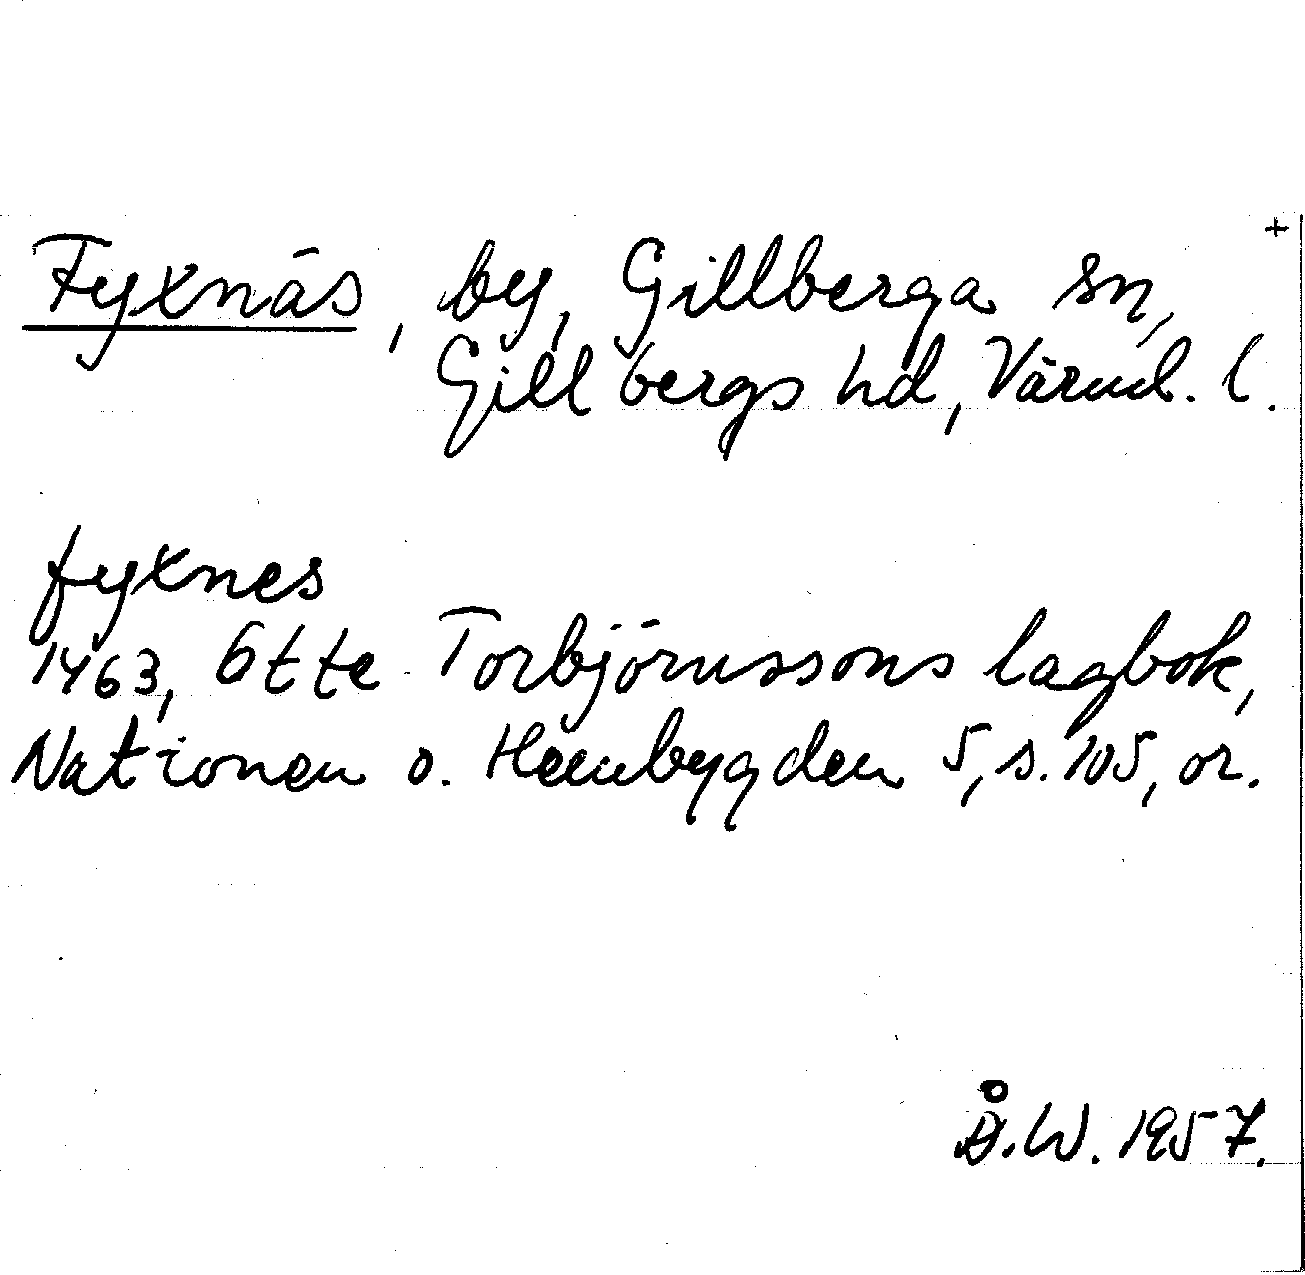 +
Fyxnäs, by, Gillberga sn,
Gillbergs hd, Värml. l.
fyxnes
1463, Otte Torbjörnssons lagbok,
Nationen o. Hembygden 5, s. 105, or.
Å.W. 1957.